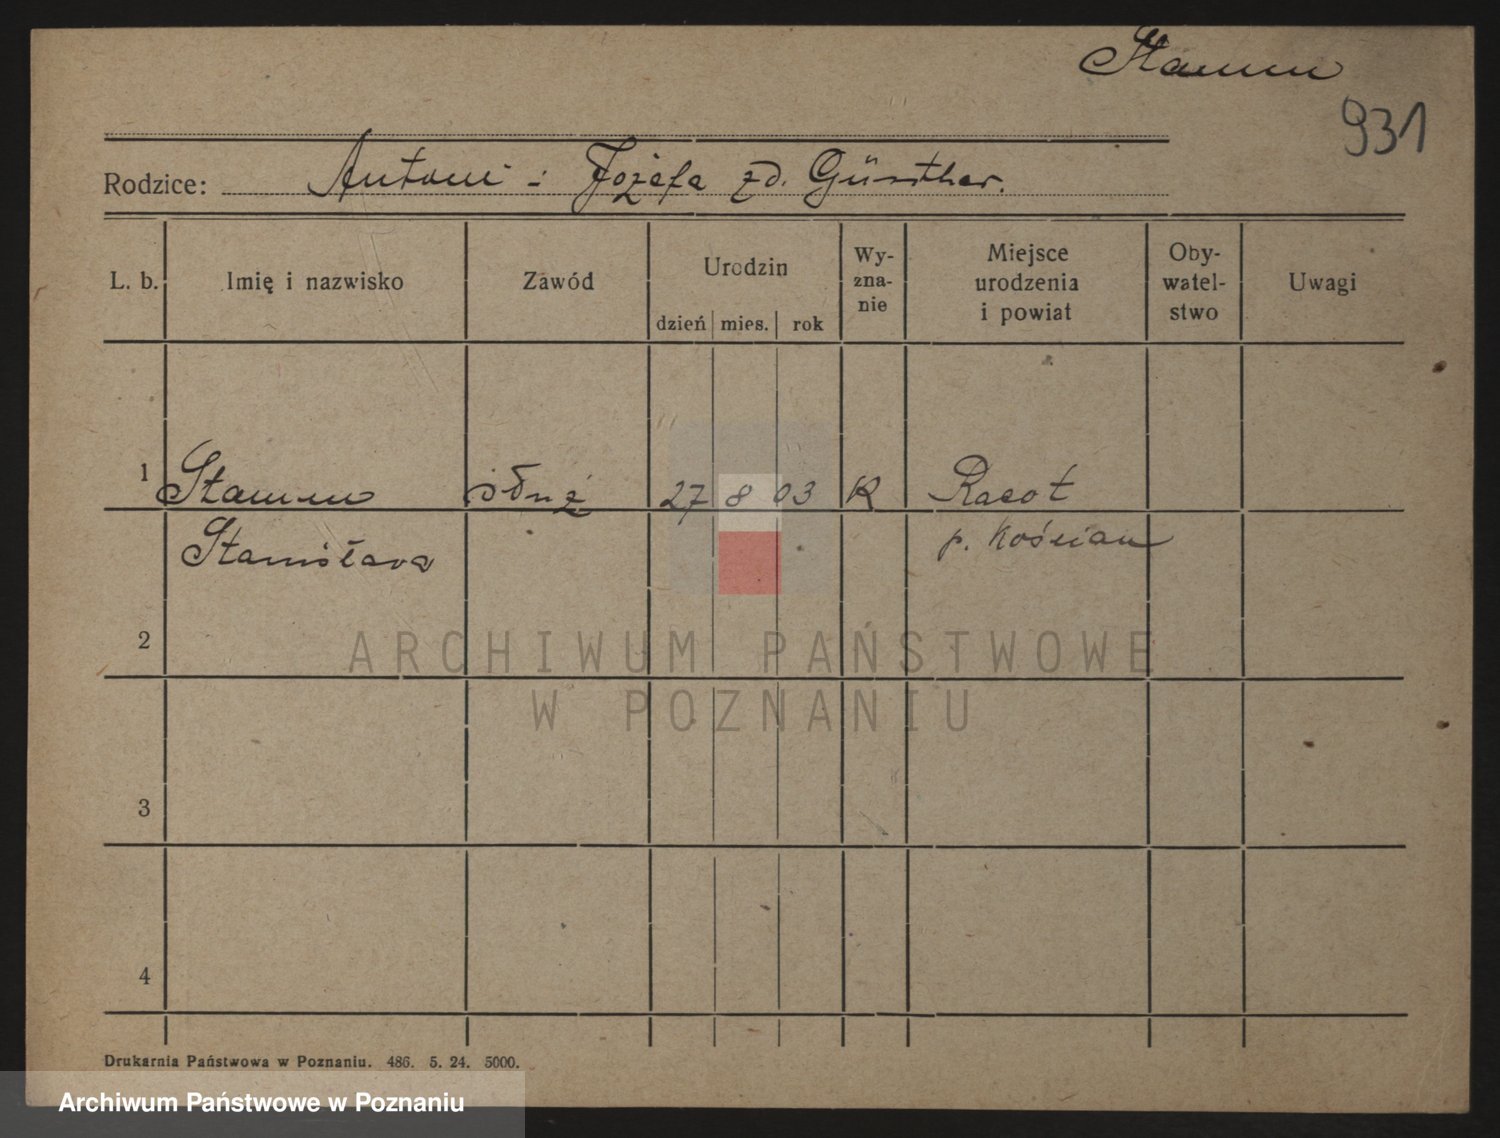 Stamm
931
Rodzice: Antoni - Józefa zd. Günther.
L. b. Imię i nazwisko Zawód Urodzin dzień mies. rok Wy-zna-nie Miejsce urodzenia i powiat Oby-watel-stwo Uwagi
1 Stamm służ 27 8 03 K Racot
Stanisława p. Kościan
2
ARCHIWUM PAŃSTWOWE
W POZNANIU
3
4
Drukarnia Państwowa w Poznaniu. 486. 5. 24. 5000.
Archiwum Państwowe w Poznaniu